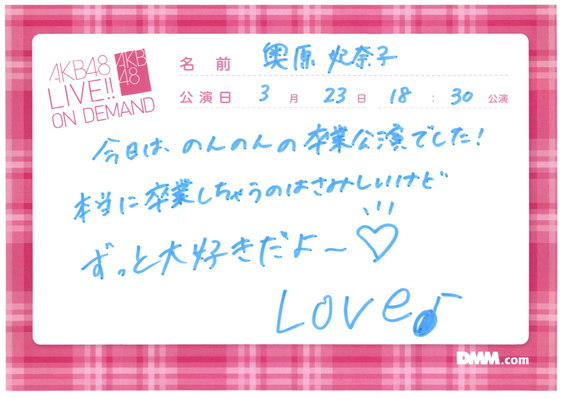 AKB48
LIVE!!
ON DEMAND
AKB
48
名前 奥原 妃奈子
公演日 3月23日 18:30公演
今日は、のんのんの卒業公演でした!
本当に卒業しちゃうのはさみしいけど
ずっと大好きだよ〜♡
Love♪
DMM.com